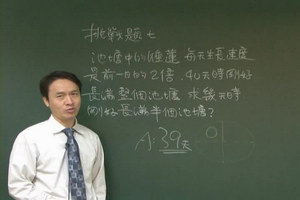 挑戰題七
池塘中的睡蓮 每天生長速度
是前一天的2倍，40天時剛好
長滿整個池塘 求幾天時
剛好長滿半個池塘？
A:39天